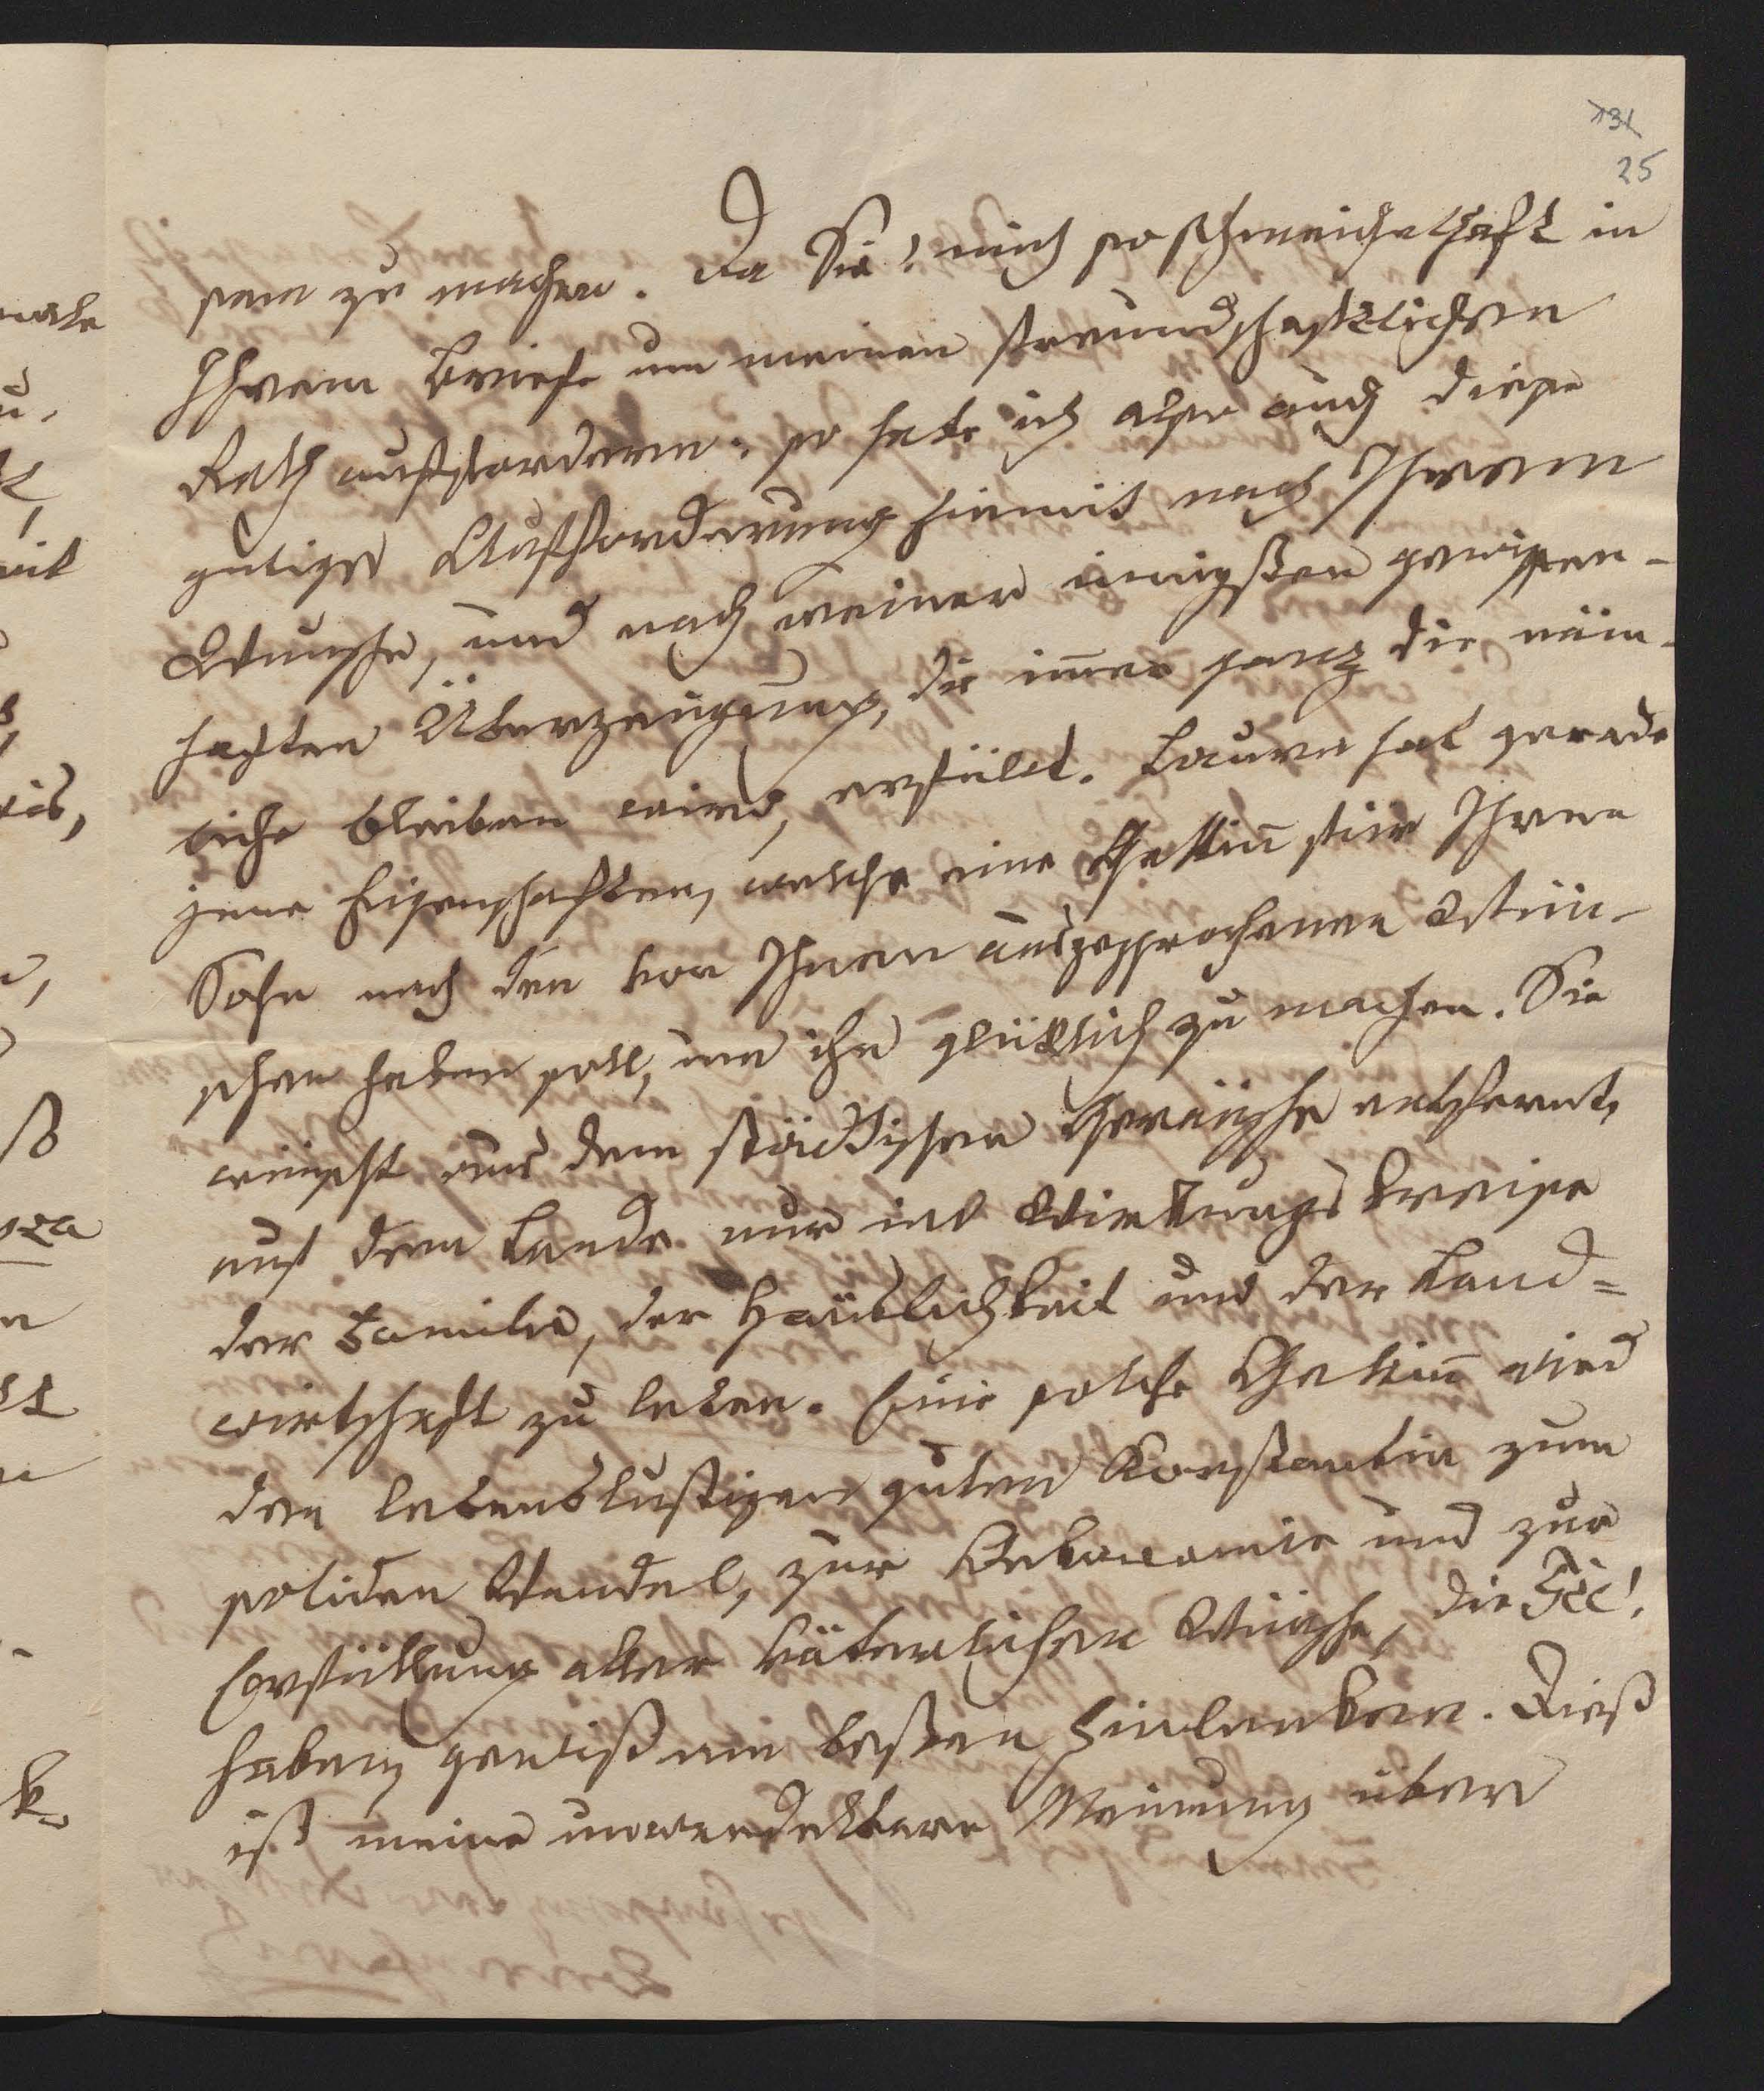 131
25
sam zu machen. Da Sie! mich so schmeichelhaft in
Ihrem Briefe um meinen freundschaftlichen
Rath auffordern: so habe ich also auch diese
gütige Aufforderung hiemit nach Ihrem
Wunsche, und nach meiner innigsten gewissen-
haften Überzeugung, die im̅er ganz die näm-
liche bleiben wird, erfüllt. Laura hat gerade
jene Eigenschaften, welche eine Gattin̅ für Ihren
Sohn nach den von Ihnen ausgesprochenen Wün-
schen haben soll, um ihn glücklich zu machen. Sie
wünscht aus dem städtischen Geräusche entfernt,
auf dem Lande nur im Wirkungskreise
der Familie, der Häuslichkeit und der Land=
wirthschaft zu leben. Eine solche Gattin̅ wird
den lebenslustigen guten Konstantin zum
soliden Wandel, zur Oekonomie und zur
Erfüllung aller väterlichen Wünsche, die
haben, gewiß am besten hinlenken. Dieß
ist meine unwandelbare Meinung über